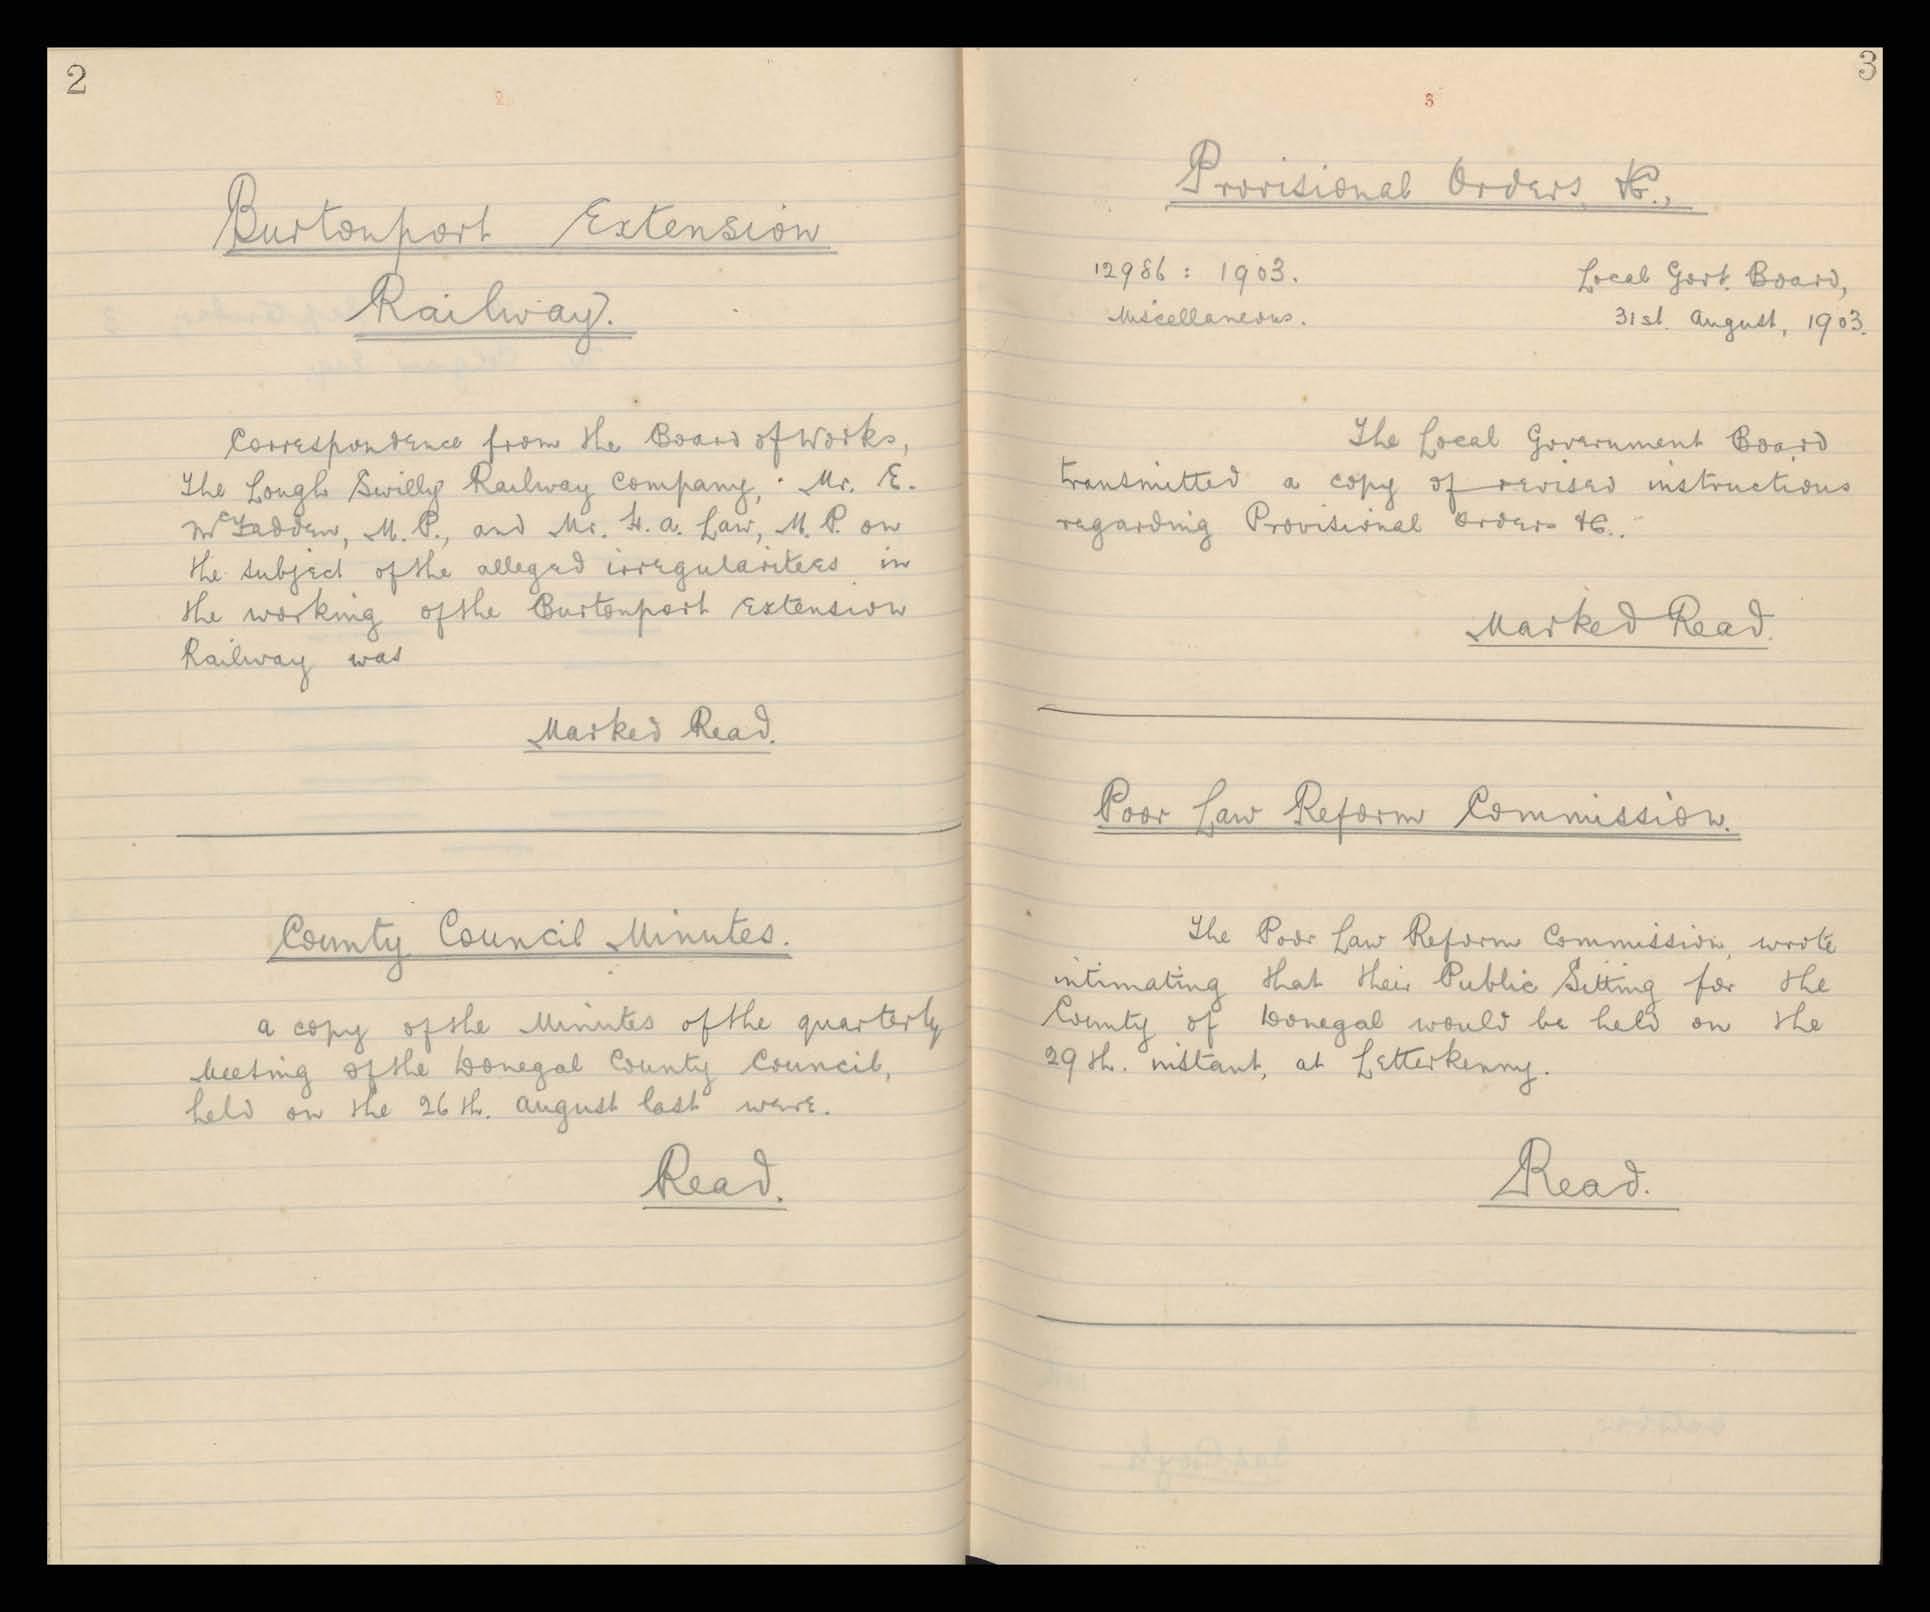 2
2
Burtonport Extension
Railway.
Correspondence from the Board of Works,
The Lough Swilly Railway Company, Mr. E.
McFadden, M.P., and Mr. H. A. Law, M.P. on
the subject of the alleged irregularitees in
the working of the Burtonport Extension
Railway was
Marked Read.
County Council Minutes.
A copy of the Minutes of the quarterly
Meeting of the Donegal County Council,
held on the 26th. August last were.
Read.
3
3
Provisional Orders, &c.,
12986 : 1903.
Local Govt. Board,
Miscellaneous.
31st. August, 1903.
The Local Government Board
transmitted a copy of revised instructions
regarding Provisional Orders &c..
Marked Read.
Poor Law Reform Commission.
The Poor Law Reform Commission, wrote
intimating that their Public Sitting for the
County of Donegal would be held on the
29th. instant, at Letterkenny.
Read.